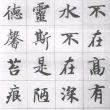 不在高有
水不在深
靈斯是陋
德馨苔痕